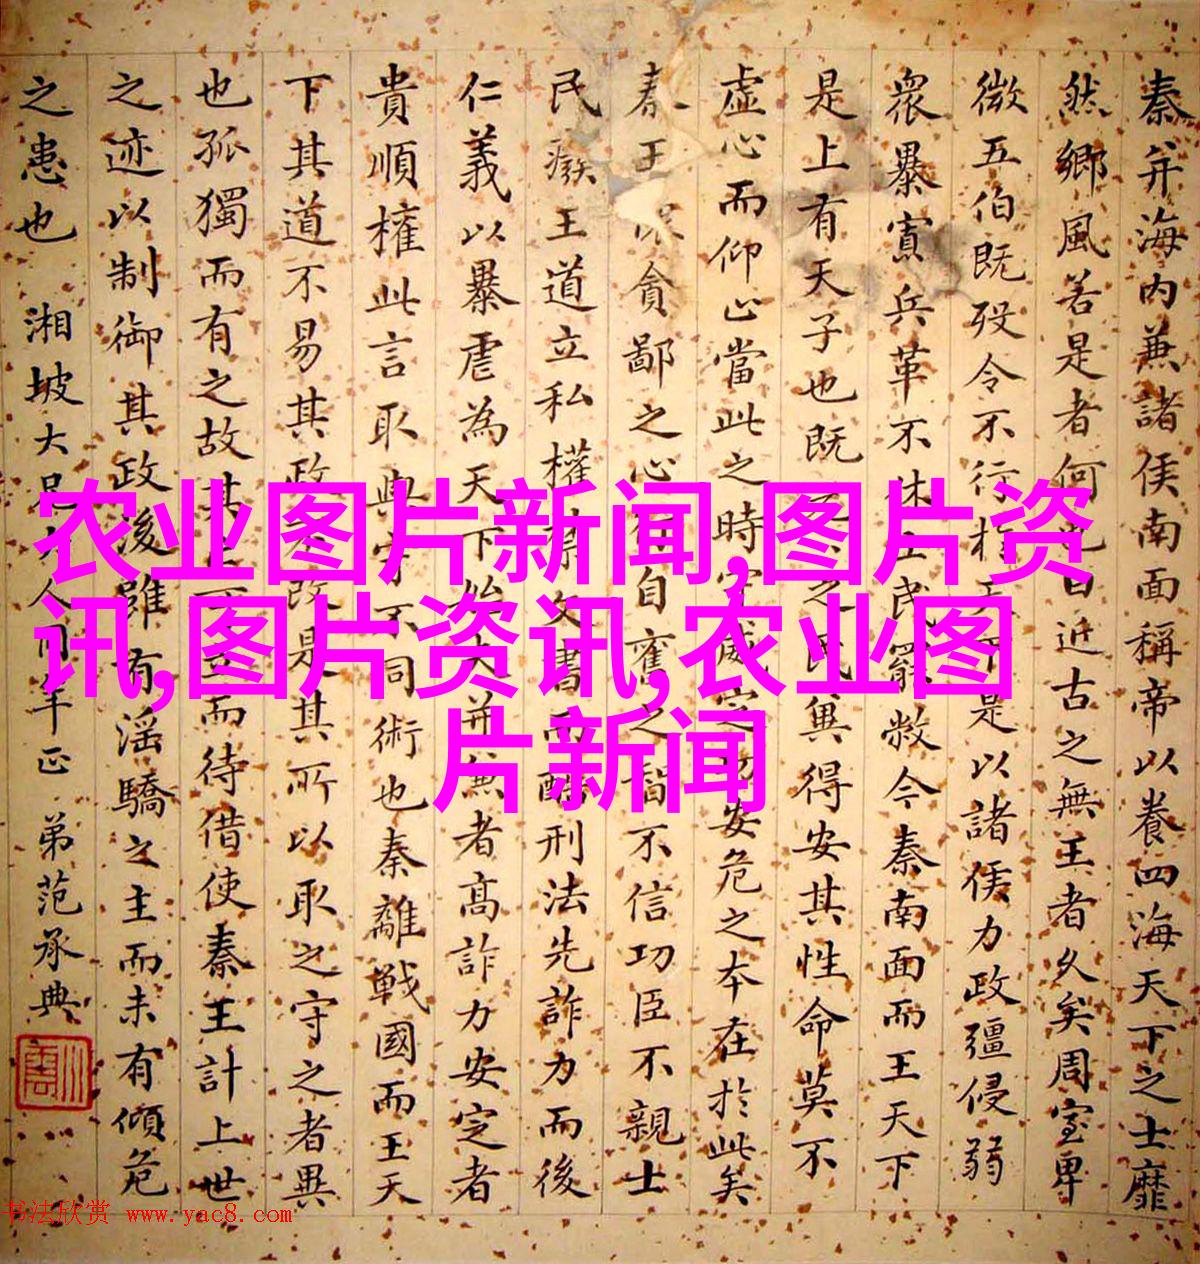 秦并海内兼諸侯南面稱帝以養四海天下之士靡
然鄉風若是者何也曰近古之無王者久矣周室卑
微五伯既歿令不行於天下是以諸侯力政彊侵弱
衆暴寡兵革不休士民罷敝今秦南面而王天下
是上有天子也既元元之民兾得安其性命莫不
虛心而仰上當此之時守威定功安危之本在於此矣
秦王懷貪鄙之心行自奮之智不信功臣不親士
民廢王道立私權禁文書而酷刑法先詐力而後
仁義以暴虐為天下始夫并兼者高詐力安定者
貴順權此言取與守不同術也秦離戰國而王天
下其道不易其政不改是其所以取之守之者異
也孤獨而有之故其亡可立而待借使秦王計上世
之迹以制御其政後雖有淫驕之主而未有傾危
之患也 湘坡大兄大人同年正 弟范承典
农业图片新闻,图片资
讯,图片资讯,农业图
片新闻
书法欣赏 www.yac8.com